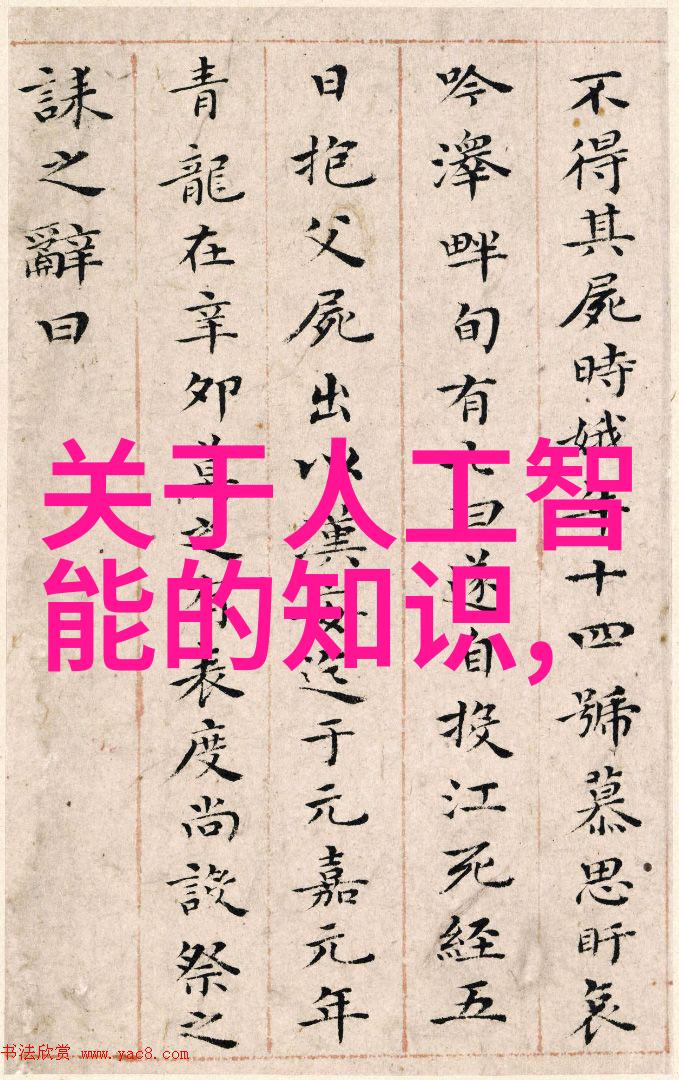 不得其屍時娥年十四號慕思盱哀
吟澤畔旬有七日遂自投江死經五
日抱父屍出以漢安迄于元嘉元年
青龍在辛卯莫之有表度尚設祭之
誄之辭曰
关于人工智
能的知识,
书法欣赏 www.yac8.com